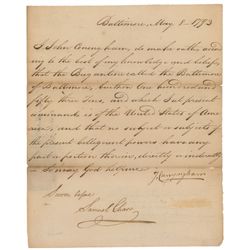 Baltimore, May 8 - 1793
I John Cunningham, do make oath, accord
ing to the best of my knowledge and belief,
that the Brigantine called the Baltimore
of Baltimore, burthen One hundred and
fifty three tons, and which I at present
command is of the United States of Ame
rica, and that no subject or subjects of
the present belligerent powers have any
part or portion therein, directly or indirectly
So help God
J Cunningham
Sworn before
Samuel Chase